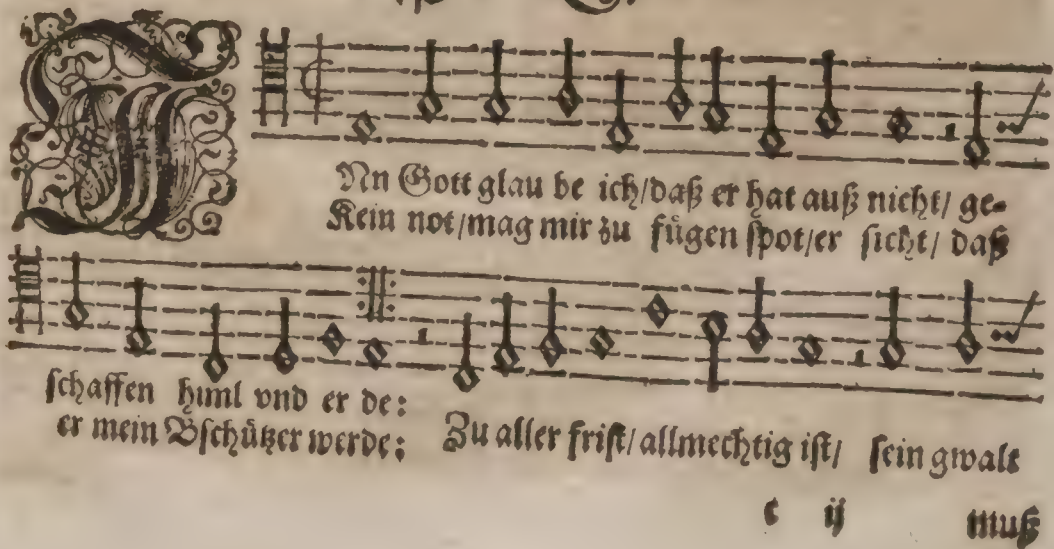 JNn Gott glau be ich/daß er hat auß nicht/ ge-
Kein not/mag mir zu fügen spot/er sicht/ daß
schaffen himl vnd er de:
er mein Bschützer werde: Zu aller frist/allmechtig ist/ sein gwalt
c ij muß